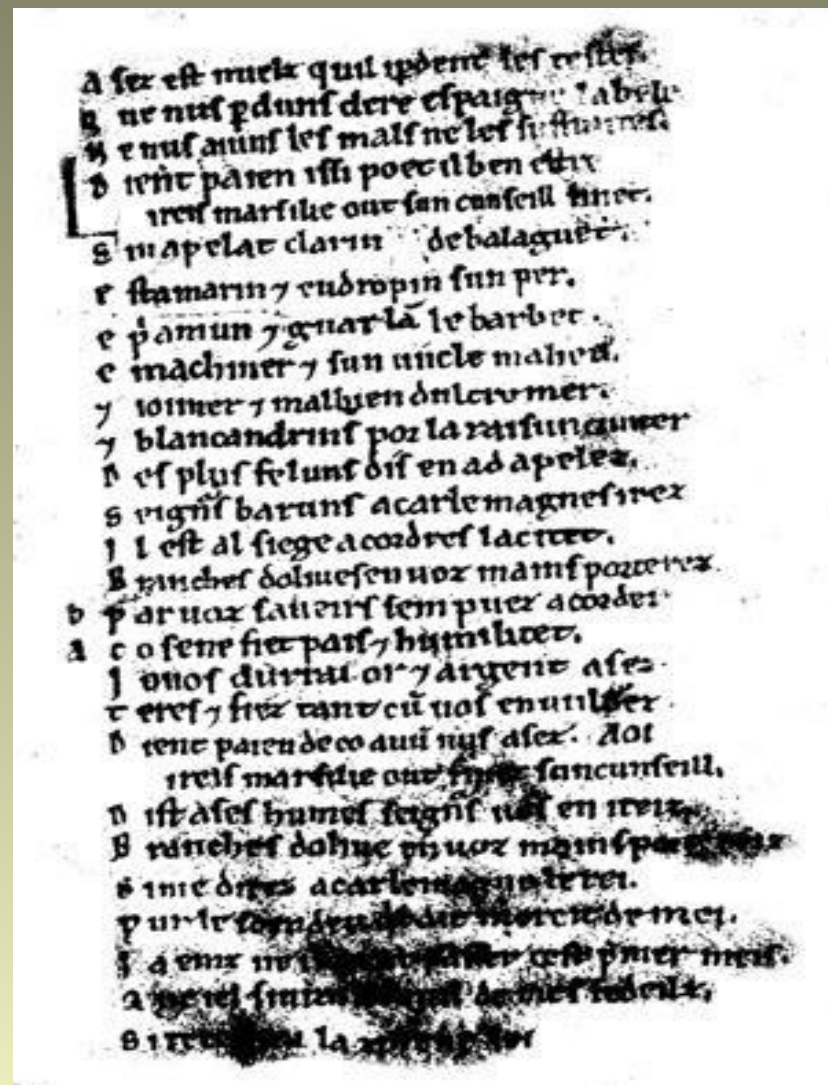 A sez est mielz quil i pdent les testes.
Q ue nus pduns clere espaigne la bele
N e nus aiuns les mals ne les suffraites.
D ient paien issi poet il ben estre
ireis marsilie out sun cunseill finet.
S in apelat clarin de balaguet.
E stamarin ⁊ eudropin sun per.
E pamun ⁊ guarlan le barbet.
E machiner ⁊ sun uncle maheu.
⁊ ioimer ⁊ malbien dultremer.
⁊ blancandrins por la raisun cunter
D es plus feluns dis en ad apelez.
S eigns baruns a carlemagnes irez
I l est al siege a cordres la citet.
B ranches dolives en voz mains porterez
P ar voz saveirs sem puez acorder
C o senefiet pais ⁊ humilitet.
J o vos durrai or ⁊ argent asez.
T eres ⁊ fiez tant cū vos en vuldrez
D ient paien de co avū nus asez. Aoi
ireis marsilie out finet sun cunseill.
D ist a ses humes seigns vos en ireiz.
B ranches dolive en voz mains
S i me direz a carlemagne le rei.
P ur le soen deu qil ait mercit de mei.
J a einz ne passer cest pmer meis.
de mes fedeilz.
S i la